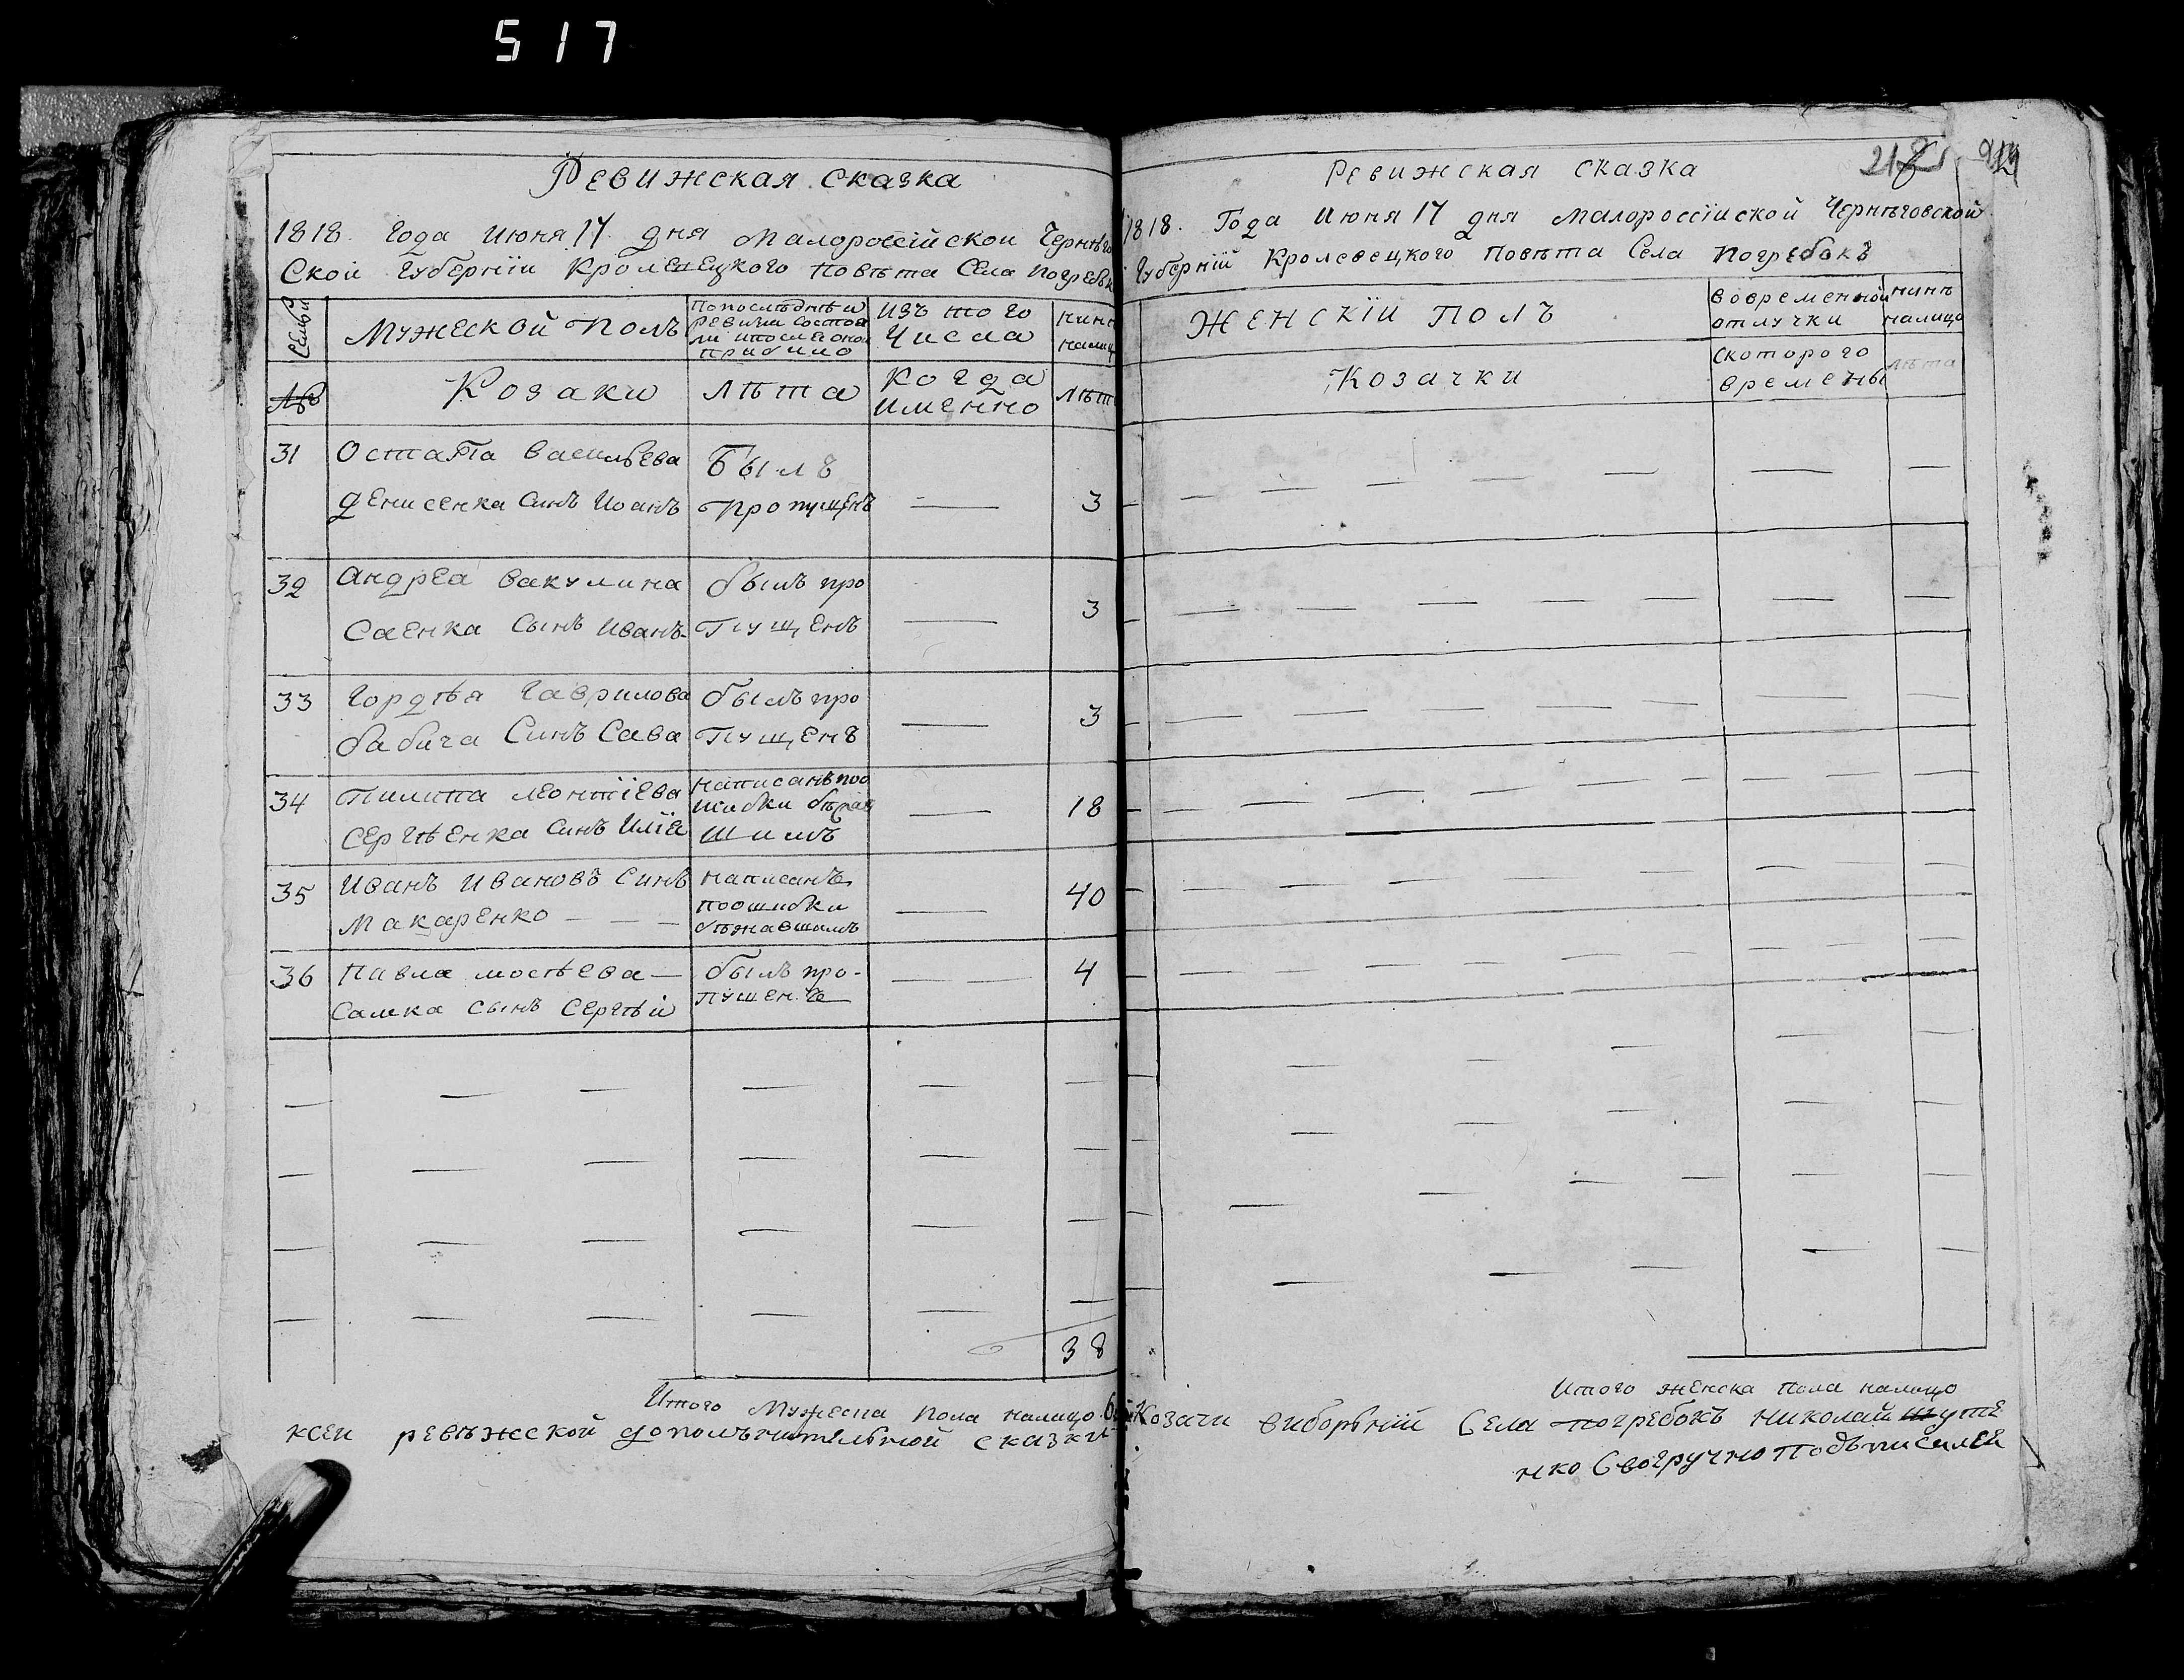 517
Ревижская сказка
1818. Года Июня 17 дня Малороссійской Чернѣго
Ской Губерніи Кролевецкого повѣта Села погребк
Семьи
Мужеской Полъ
По последнѣи
ревизіи состоя
ли и после оной
прибило
изъ того
Числа
нинѣ
налиц
№
Козаки
лѣта
когда
именно
лѣт
31
Остапа васильева
денисенка Синъ Иоанъ
Былъ
пропущенъ
3
32
андрея вакулина
Саенка Сынъ Иванъ
былъ про
пущенъ
3
33
гордѣя гаврилова
бабича Синъ Сава
былъ про
пущенъ
3
34
пилипа леонтіева
сергѣенка синъ Илія
написанъ поо
шибки
шимъ
18
35
Иванъ Ивановъ Синъ
Макаренко
написанъ
поошибки
бѣжавшимъ
40
36
павла мосѣева
Самка сынъ Сергѣй
былъ про-
пущенъ
4
38
Итого Мужеска пола налицо
ксеи ревѣжской дополънительной сказки
Ревижская сказка
1818. Года Июня 17 дня Малороссійской Чернѣговской
Губерній Кролевецкого повѣта Села погребокъ
женскіи полъ
вовременной
отлучки
нинѣ
налицо
Козачки
скоторого
времены
лѣта
Итого женска пола налицо
Козачи виборъній Села погребокъ николай шуте
нко Своеручно подъписался